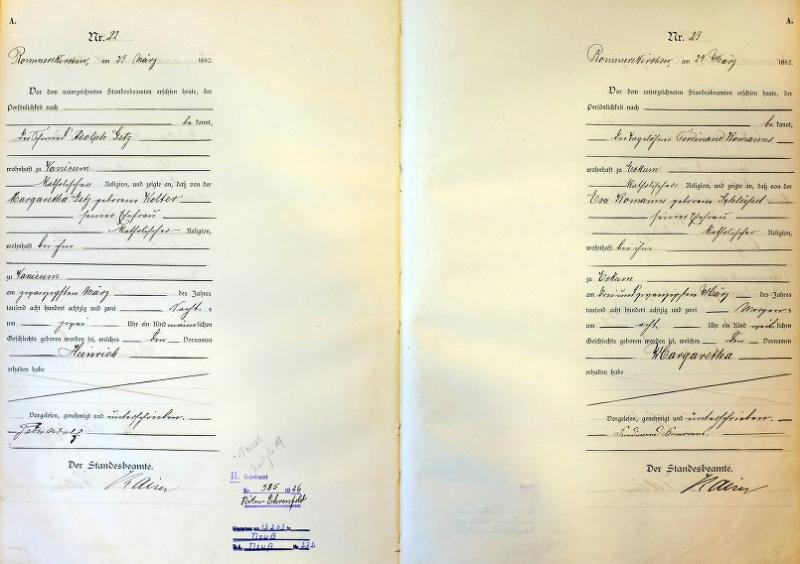 A.
Nr. 22
Rommerskirchen, am 23 März 1882.
Vor dem unterzeichneten Standesbeamten erschien heute, der
Persönlichkeit nach
be kannt,
der Schmied Adolph Getz
wohnhaft zu Vanicum
katholischer Religion, und zeigte an, daß von der
Margaretha Getz geborene Wolter
seiner Ehefrau
katholischer Religion,
wohnhaft bei ihm
zu Vanicum
am zwanzigsten März des Jahres
tausend acht hundert achtzig und zwei Nachts
um zwei Uhr ein Kind männlichen
Geschlechts geboren worden sei, welches den Vornamen
Heinrich
erhalten habe
Vorgelesen, genehmigt und unterschrieben.
Der Standesbeamte.
Kaiser
II.
Nr. 385 1936
Köln-Ehrenfeld
Neuß
Neuß Nr. 232
A.
Nr. 23
Rommerskirchen, am 24 März 1882.
Vor dem unterzeichneten Standesbeamten erschien heute, der
Persönlichkeit nach
be kannt,
der Tagelöhner Ferdinand Romanns
wohnhaft zu Eckum
katholischer Religion, und zeigte an, daß von der
Eva Romanns geborene
seiner Ehefrau
katholischer Religion,
wohnhaft bei ihm
zu Eckum
am dreiundzwanzigsten März des Jahres
tausend acht hundert achtzig und zwei Morgens
um acht Uhr ein Kind weiblichen
Geschlechts geboren worden sei, welches den Vornamen
Margaretha
erhalten habe
Vorgelesen, genehmigt und unterschrieben.
Ferdinand Romanns
Der Standesbeamte.
Kaiser